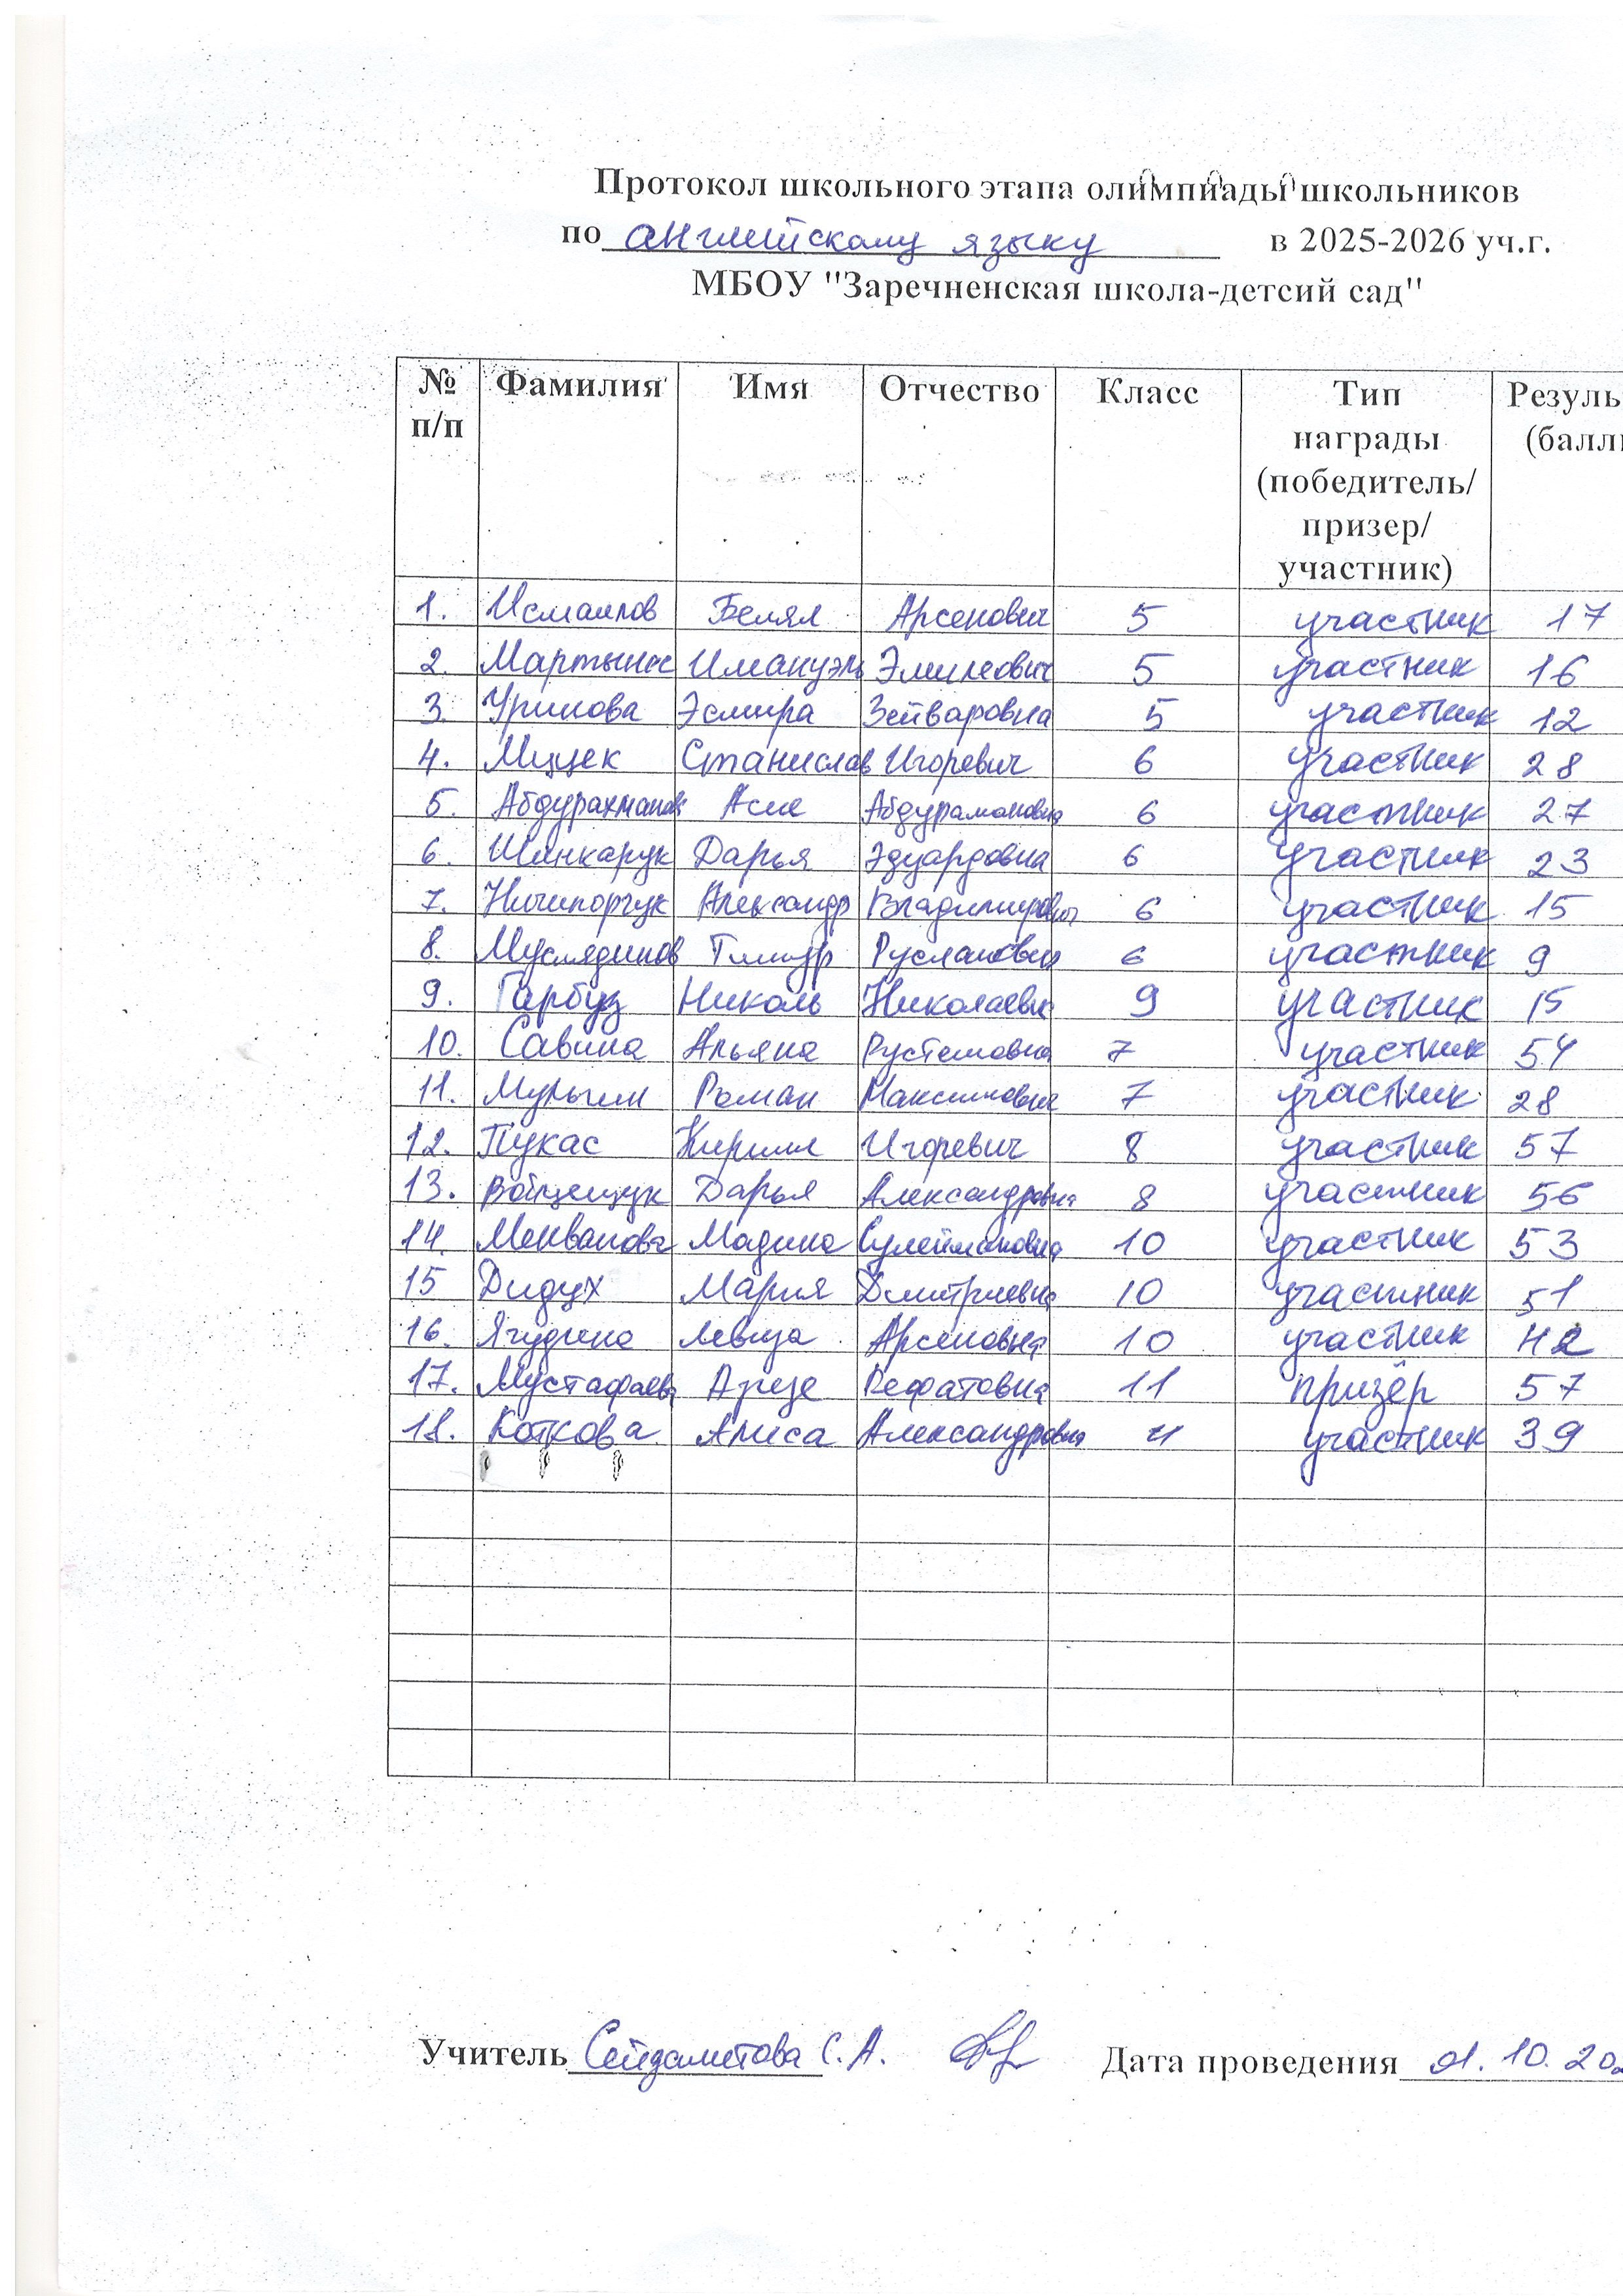 Протокол школьного этапа олимпиады школьников
по английскому языку в 2025-2026 уч.г.
МБОУ "Заречненская школа-детсий сад"
№ п/п Фамилия Имя Отчество Класс Тип награды (победитель/ призер/ участник) Резуль (балл
1. Исмаилов Белял Арсенович 5 участник 17
2. Мартынос Имануэль Эмилевич 5 участник 16
3. Эсмира Зейваровна 5 участник 12
4. Мицек Станислав Игоревич 6 участник 28
5. Абдурахманова Асие Абдурамановна 6 участник 27
6. Шинкарук Дарья Эдуардовна 6 участник 23
7. Ничипорчук Александр Владимирович 6 участник 15
8. Муслядинов Тимур Русланович 6 участник 9
9. Гарбуз Николь Николаевна 9 участник 15
10. Савина Альяна Рустемовна 7 участник 54
11. Мульгин Роман Максимович 7 участник 28
12. Пукас Кирилл Игоревич 8 участник 57
13. Войцещук Дарья Александровна 8 участник 56
14. Менванова Мадина Сулеймановна 10 участник 53
15 Дидух Мария Дмитриевна 10 участник 51
16. Ягудина Левиза Арсеновна 10 участник 42
17. Мустафаева Арзе Рефатовна 11 призёр 57
18. Коткова Алиса Александровна 11 участник 39
Учитель Сейдаметова С.А. Дата проведения 01.10.202